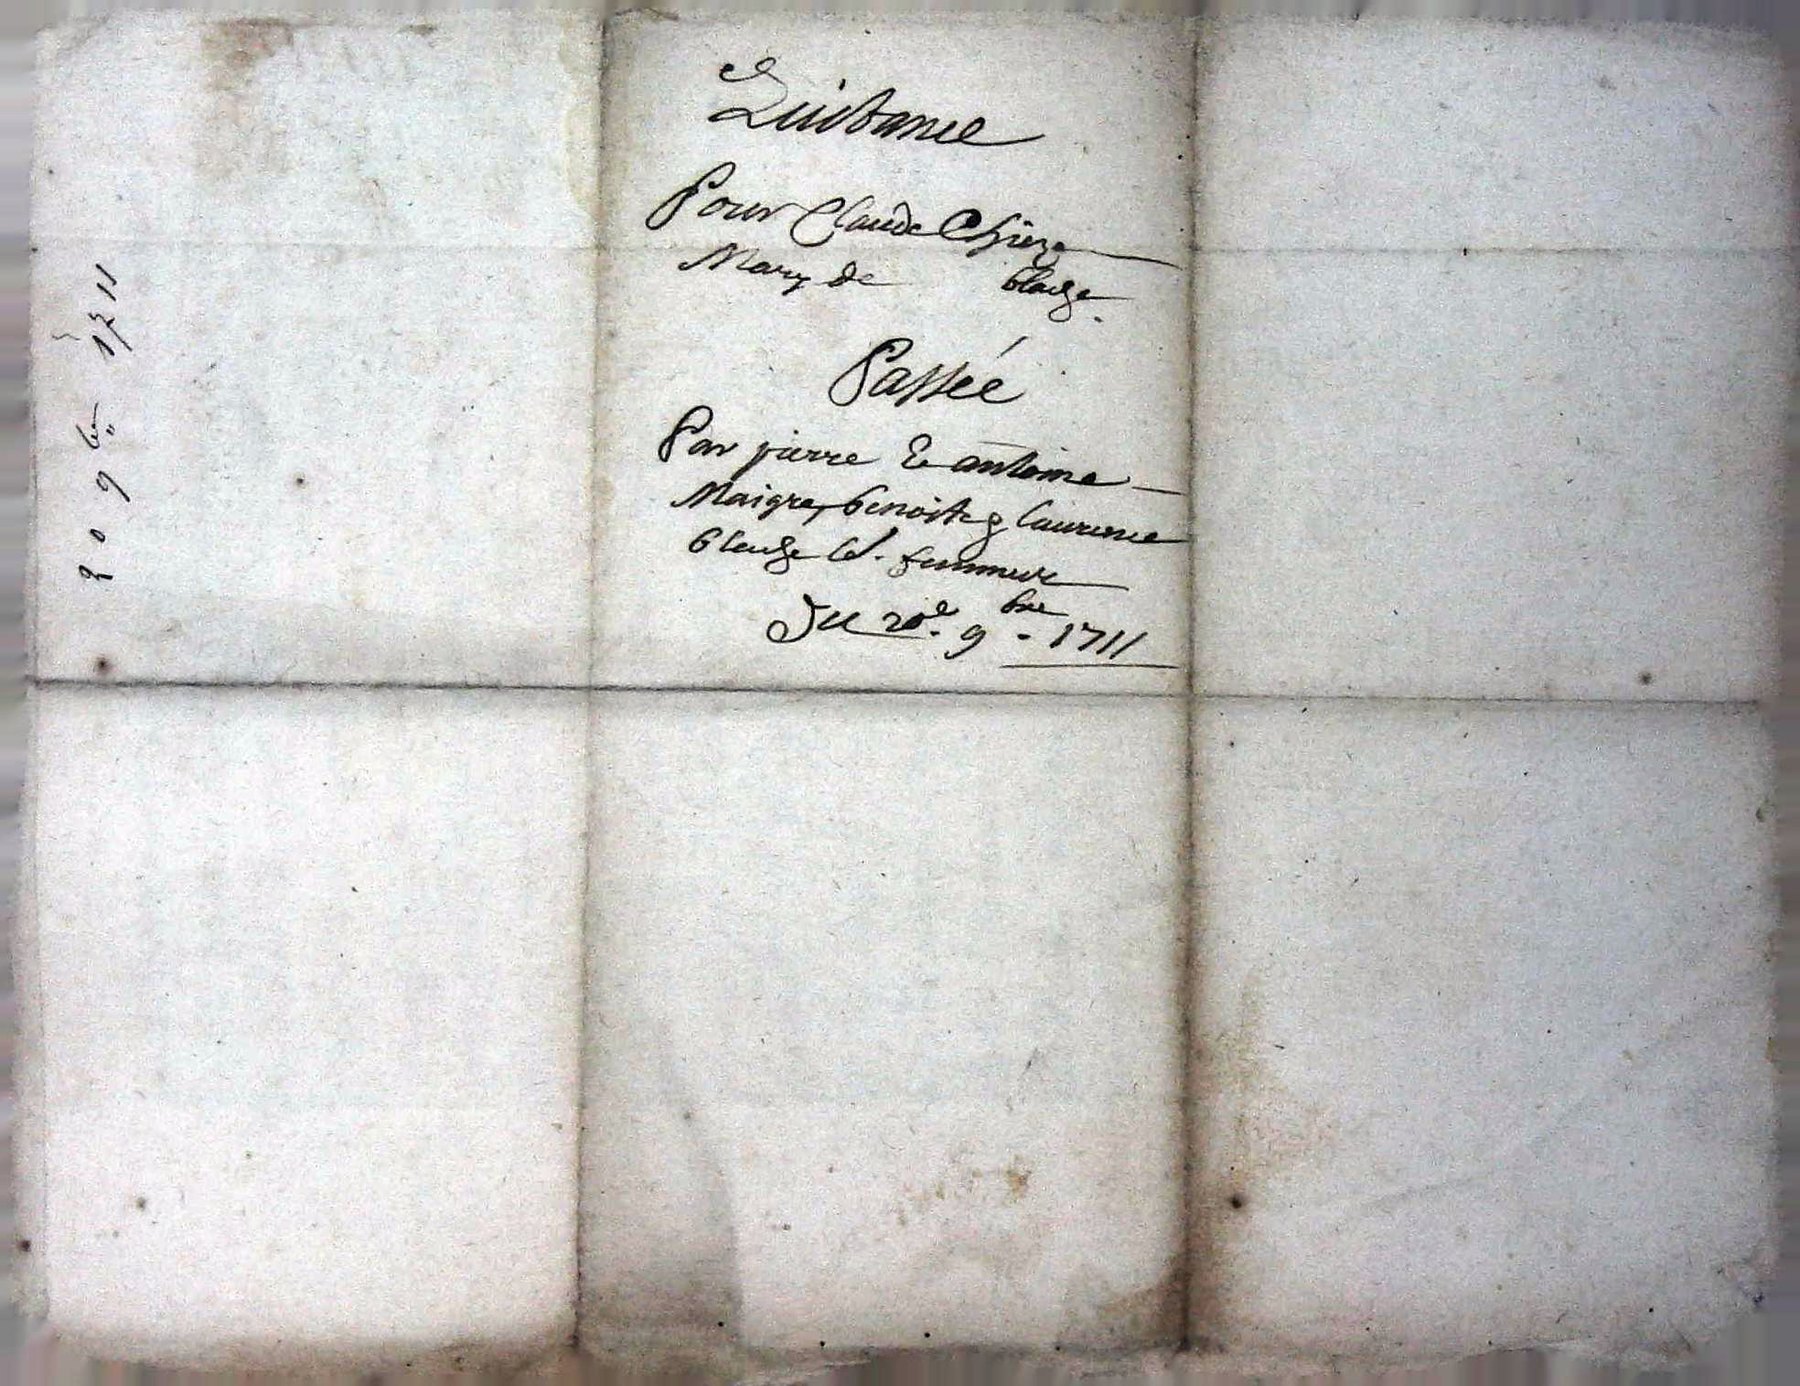 Quictance
Pour Claude Chieze
Mary de blache
Passée
Par pierre & antoine
Maigre, benoite & laurence
blache
Du 20e. 9bre 1711
20 9bre 1711